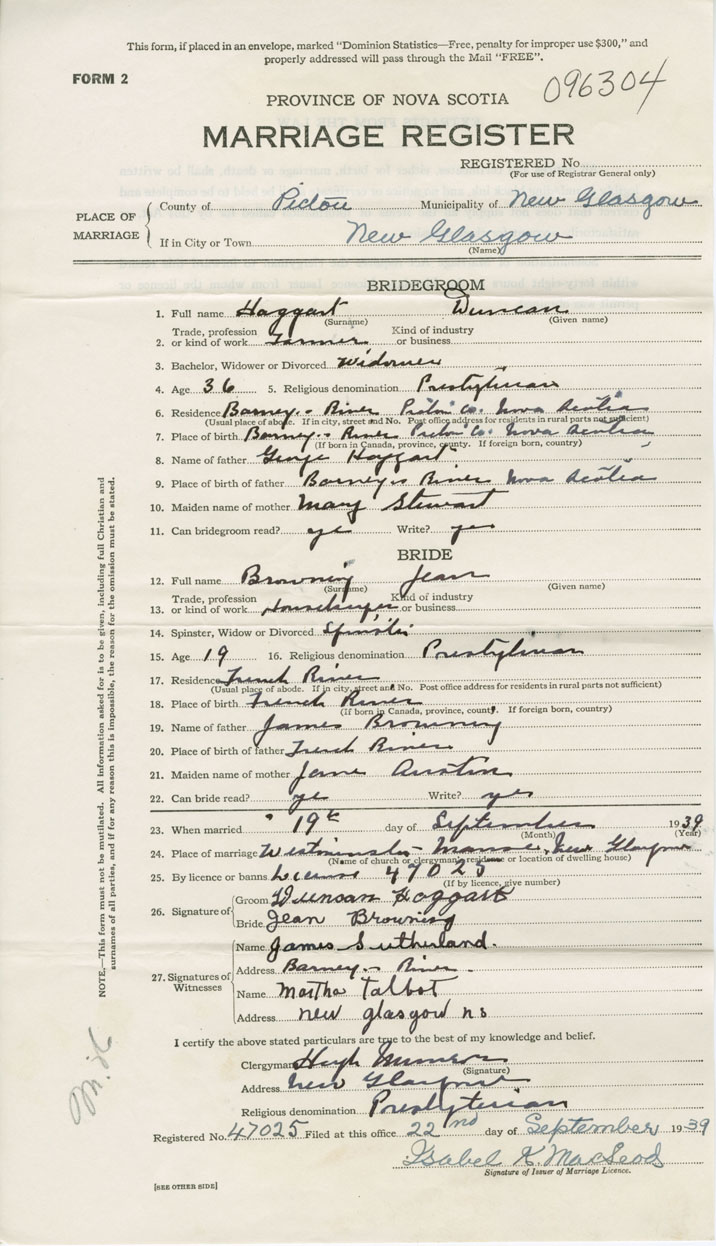 This form, if placed in an envelope, marked "Dominion Statistics—Free, penalty for improper use $300," and
properly addressed will pass through the Mail "FREE".
FORM 2
096304
PROVINCE OF NOVA SCOTIA
MARRIAGE REGISTER
REGISTERED No.
(For use of Registrar General only)
PLACE OF MARRIAGE
County of Pictou Municipality of New Glasgow
If in City or Town New Glasgow
(Name)
BRIDEGROOM
1. Full name Haggart Duncan
(Surname) (Given name)
2. Trade, profession or kind of work Farmer Kind of industry or business
3. Bachelor, Widower or Divorced Widower
4. Age 36 5. Religious denomination Presbyterian
6. Residence Barney's River Pictou Co. Nova Scotia
(Usual place of abode. If in city, street and No. Post office address for residents in rural parts not sufficient)
7. Place of birth Barney's River Pictou Co. Nova Scotia
(If born in Canada, province, county. If foreign born, country)
8. Name of father George Haggart
9. Place of birth of father Barney's River Nova Scotia
10. Maiden name of mother Mary Stewart
11. Can bridegroom read? yes Write? yes
BRIDE
12. Full name Browning Jean
(Surname) (Given name)
13. Trade, profession or kind of work Housekeeper Kind of industry or business
14. Spinster, Widow or Divorced Spinster
15. Age 19 16. Religious denomination Presbyterian
17. Residence French River
(Usual place of abode. If in city, street and No. Post office address for residents in rural parts not sufficient)
18. Place of birth French River
(If born in Canada, province, county. If foreign born, country)
19. Name of father James Browning
20. Place of birth of father French River
21. Maiden name of mother Jane Austin
22. Can bride read? yes Write? yes
23. When married 19th day of September 1939
(Month) (Year)
24. Place of marriage Westminster Manse, New Glasgow
(Name of church or clergyman's residence or location of dwelling house)
25. By licence or banns License 47025
(If by licence, give number)
26. Signature of
Groom Duncan Haggart
Bride Jean Browning
27. Signatures of Witnesses
Name James Sutherland.
Address Barney's River
Name Martha Talbot
Address new glasgow ns
I certify the above stated particulars are true to the best of my knowledge and belief.
Clergyman Hugh Munroe
(Signature)
Address New Glasgow
Religious denomination Presbyterian
Registered No. 47025 Filed at this office 22nd day of September 1939
Isabel K. MacLeod
Signature of Issuer of Marriage Licence.
[SEE OTHER SIDE]
NOTE.—This form must not be mutilated. All information asked for is to be given, including full Christian and
surnames of all parties, and if for any reason this is impossible, the reason for the omission must be stated.